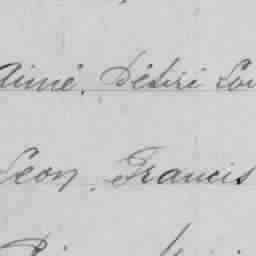 Aimé, Désiré Lou
Léon, Francis